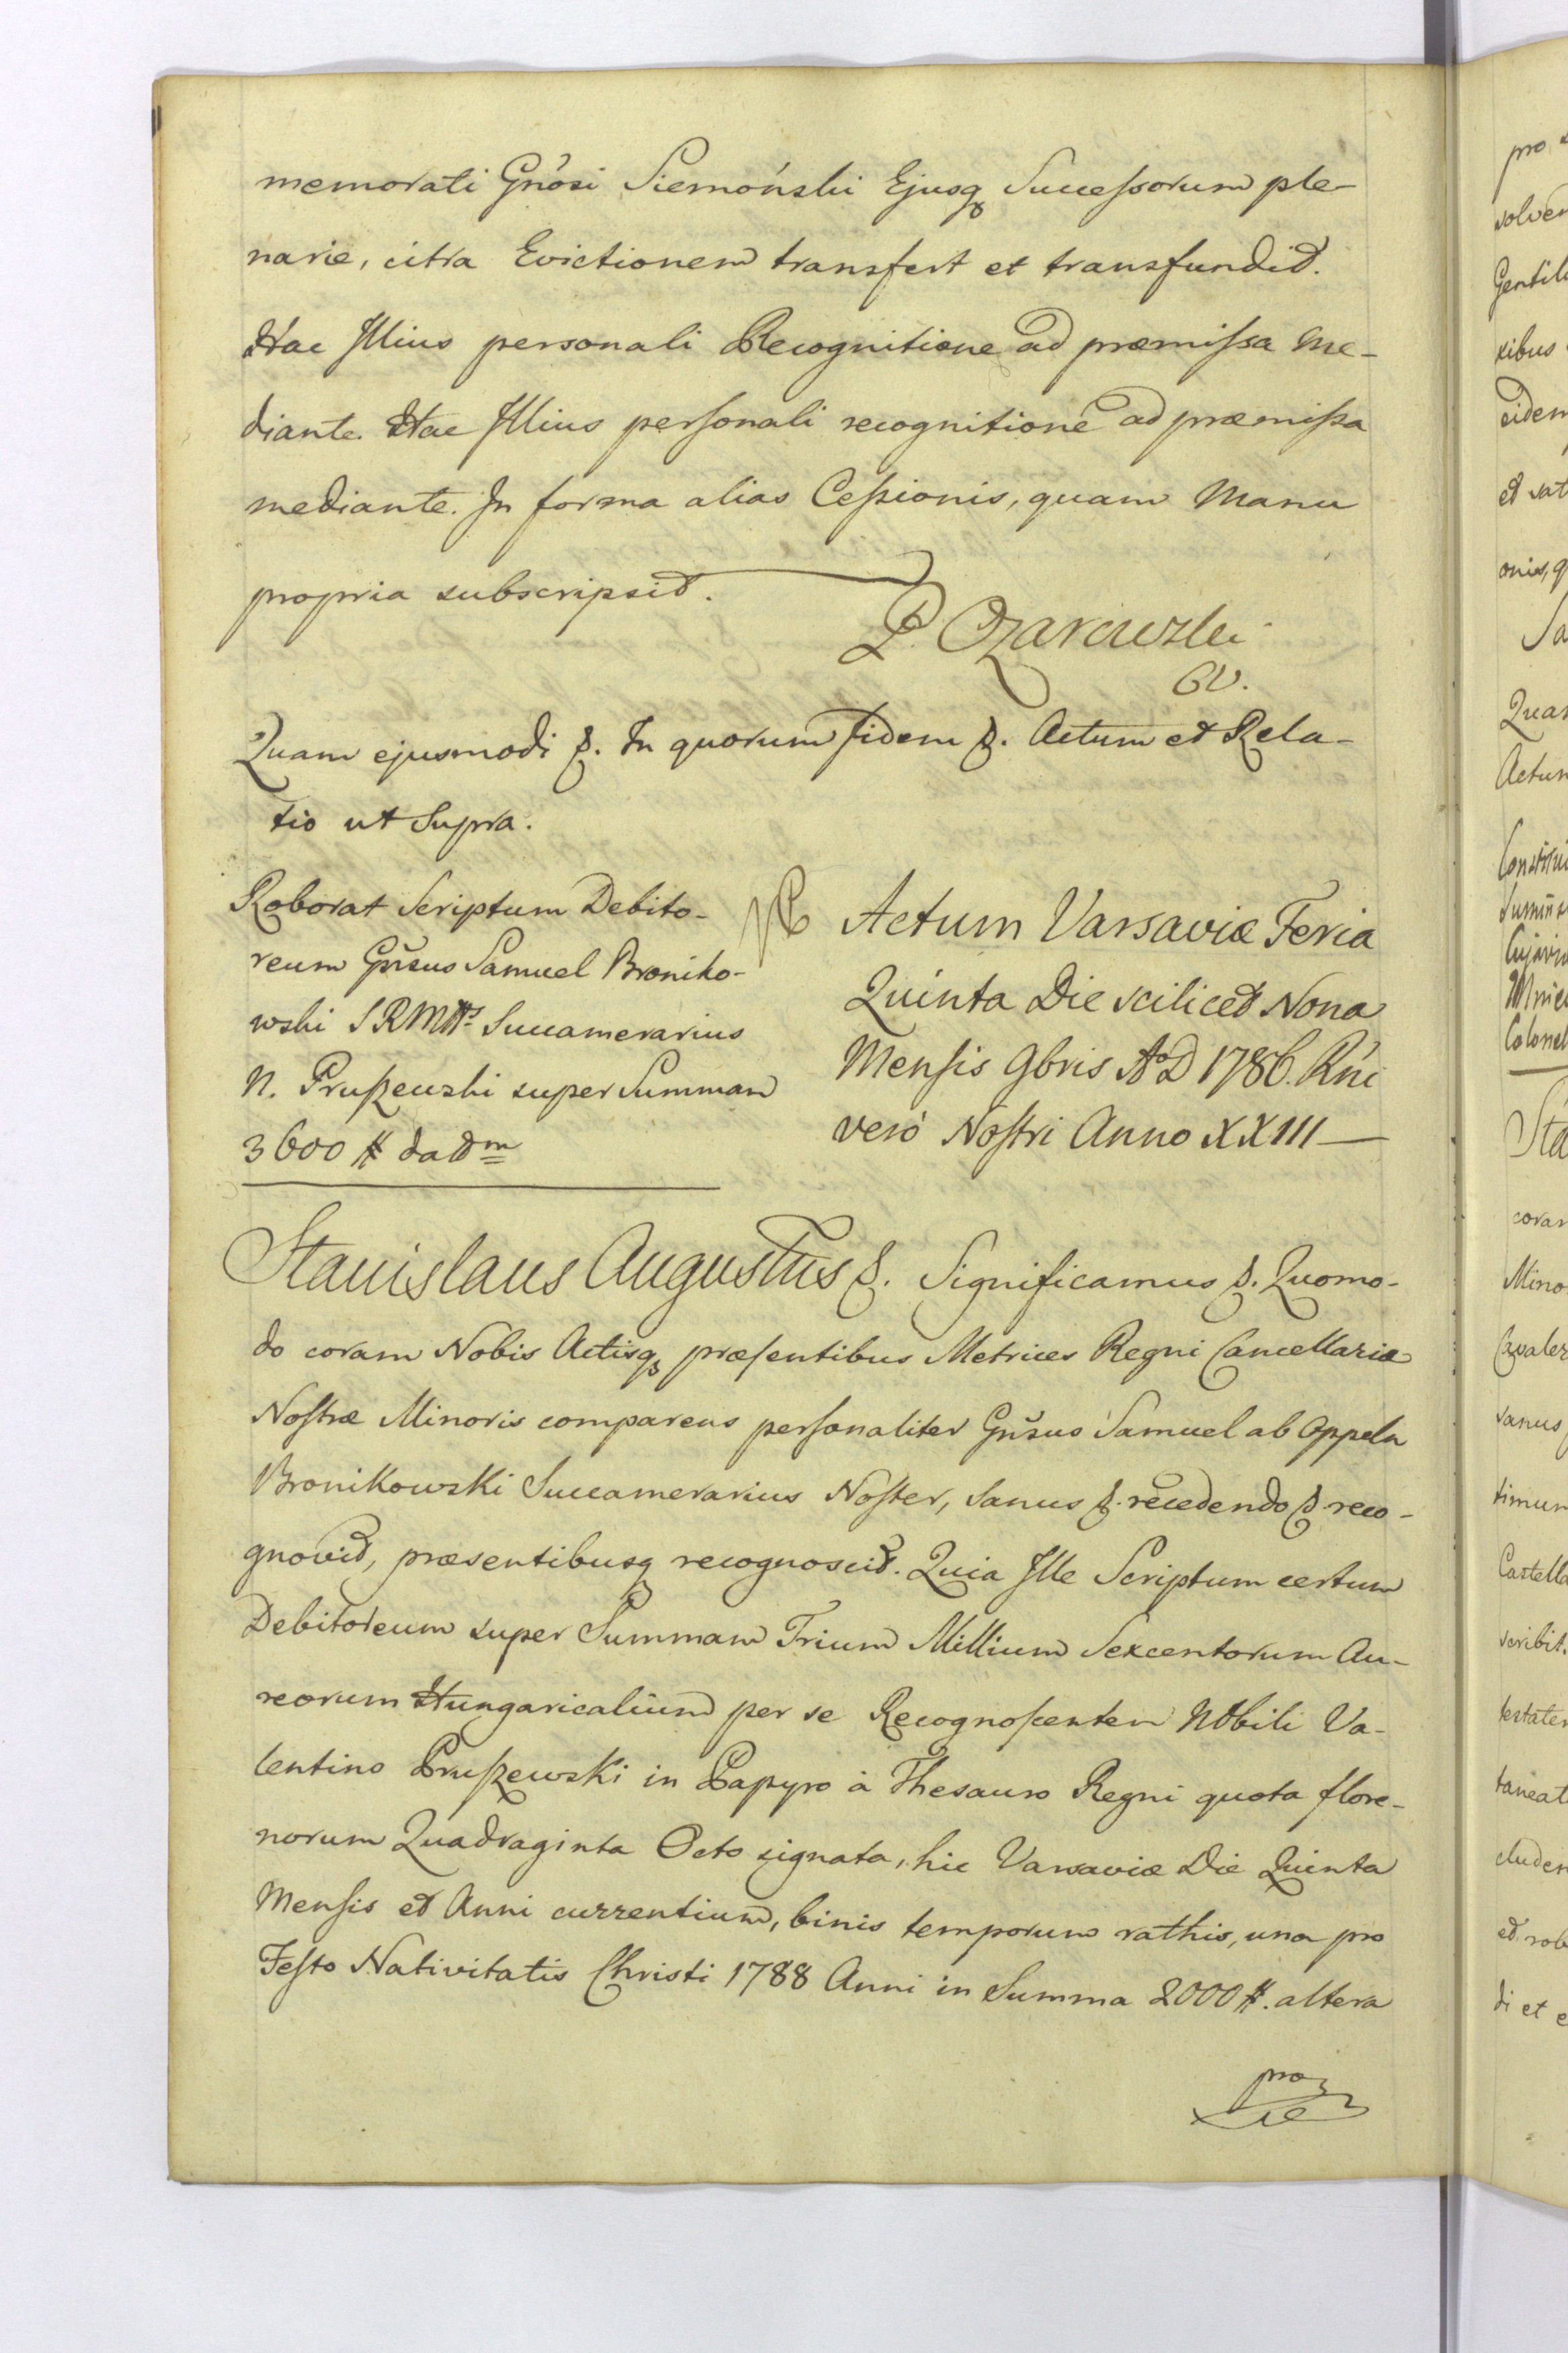 memorati Gnŏsi Siemoński Ejusq Succeſsorum ple-
narie, citra Evictionem transfert et transfundit.
Hac Illius personali Recognitione ad præmiſsa Me-
diante. Hac Illius perſonali recognitione ad præmiſsa
mediante. In forma alias Ceſsionis, quam Manu
propria subscripsit.
Quam ejusmodi &. In quorum fidem &. Actum et Rela-
tio ut Supra.
Roborat Scriptum Debito-
reum Gn̆sus Samuel Broniko-
wski SRMttis Succamerarius
N. Pruſzewski super Summam
3600 # datdm
Actum Varsaviæ Feria
Quinta Die scilicet Nona
Menſis 9bris AoD 1786. Rńi
verò Noſtri Anno XXIII
Stanislaus Augustus &. Significamus &. Quomo-
do coram Nobis Actisq præſentibus Metrices Regni Cancellariæ
Noſtræ Minoris comparens perſonaliter Gn̆sus Samuel ab Oppeln
Bronikowski Succamerarius Noſter, sanus &. recedendo & reco-
gnovit, præsentibusq recognoscit. Quia Ille Scriptum certum
Debitoreum super Summam Trium Millium Sexcentorum Au-
reorum Hungaricalium per se Recognoſcentem Nobili Va-
lentino Pruſzewski in Papyro à Thesauro Regni quota flore-
norum Quadraginta Octo signata, hic Varsaviæ Die Quinta
Menſis et Anni currentium, binis temporum rathis, una pro
Feſto Nativitatis Christi 1788 Anni in Summa 2000 #. altera
pro